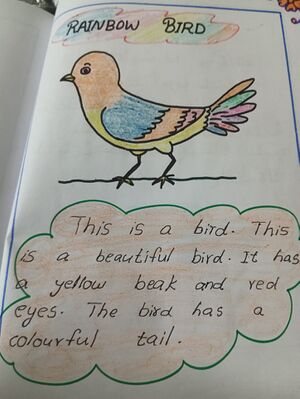 RAINBOW BIRD
This is a bird. This
is a beautiful bird. It has
a yellow beak and red
eyes. The bird has a
colourful tail.